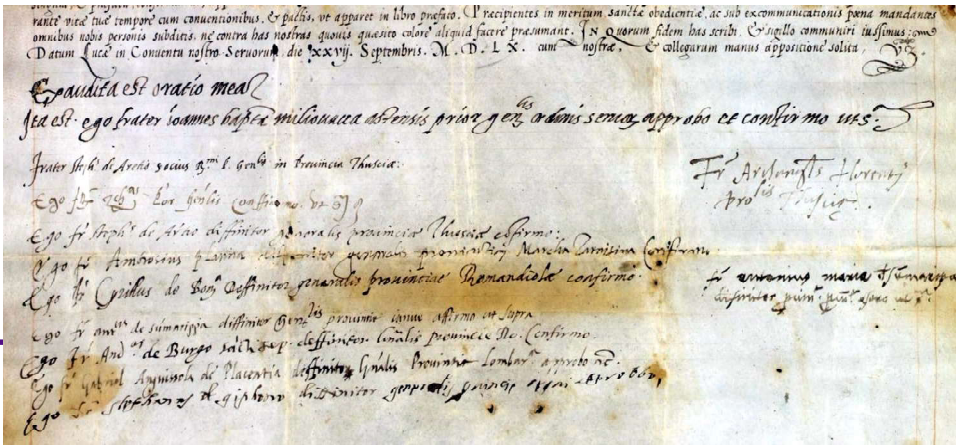 rante vitæ tuæ tempore cum conventionibus, & pactis, vt apparet in libro præfato. Præcipientes in meritum sanctæ obedientiæ, ac sub excommunicationis pœna mandantes
omnibus nobis personis subditis, ne contra has nostras quouis quæsito colore aliquid facere præsumant. IN quorum fidem has scribi, & sigillo communiri iussimus: cum
Datum Lucæ in Conuentu nostro Seruorum, die xxvij. Septembris. M.D.LX. cum nostræ, & collegarum manus appositione solita. Vz.
Exaudita est oratio mea
Ita est. ego frater ioannes baptã miliouacca astensis prior genlis ordinis seruoꝝ approbo et confirmo uts.
frater Steph. de Aretio socius Rmi P. Genlis in Prouincia Thusciæ.
Fr Archangls Florenti
prolis Thusciæ.
Ego fr
Ego fr steph. de Aretio diffinitor generalis prouinciæ Thusciæ cõfirmo.
Ego fr Ambrosius diffinitor generalis prouintiæ Marchiæ Taruisinæ Confirmo
Ego fr Cyrillus de Bon. Deffinitor generalis prouinciæ Romandiolæ confirmo.
fr antonius maria
difinitor
Ego fr de sumarippa diffinitor Genlis prouintiæ affirmo ut supra
Ego fr And. de Burgo deffinitor Gñalis prouinciæ Ro. Confirmo
Ego fr Gabriel Anguisola de Placentia deffinitor Gñalis Prouintiæ Lombar. approbo
Ego fr stephanus de diffinitor generalis